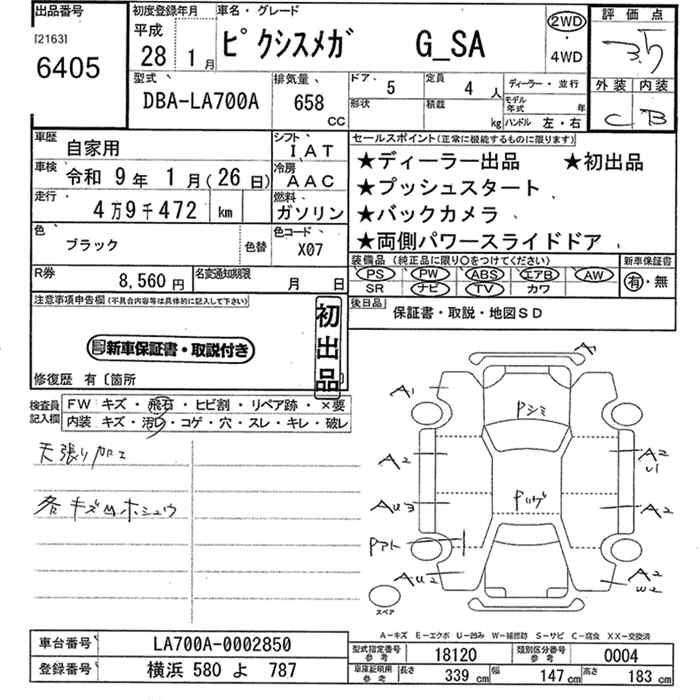 出品番号
[2163]
6405
初度登録年月
平成
28年 1月
車名・グレード
ピクシスメガ G_SA
2WD
・
4WD
評価点
3.5
外装 内装
C B
型式
DBA-LA700A
排気量
658 CC
ドア 5
形状
定員 4人
積載 kg
ディーラー・並行
モデル年式 年
ハンドル 左・右
車歴 自家用
シフト IAT
車検 令和 9年 1月(26日)
冷房 AAC
走行 4万9千472 km
燃料 ガソリン
色 ブラック 色替
色コード X07
R券 8,560円
名変通知期限 月 日
セールスポイント(正常に機能するものに限ります)
★ディーラー出品 ★初出品
★プッシュスタート
★バックカメラ
★両側パワースライドドア
装備品 (純正品に限り○をつけてください)
PS PW ABS エアB AW
SR ナビ TV カワ
新車保証書
有・無
後日品 保証書・取説・地図SD
注意事項申告欄(不具合内容等は具体的に記入して下さい)
初出品
新車保証書・取説付き
修復歴 有〔箇所
検査員記入欄
FW キズ・飛石・ヒビ割・リペア跡・×要
内装 キズ・汚レ・コゲ・穴・スレ・キレ・破レ
天張り加工
各キズ凹ホシュウ
A1
A1
Pシミ
A2
A2
U1
AU3
A2
Pアト
AU2
A2
W2
スペア
A―キズ E―エクボ U―凹み W―補修跡 S―サビ C―腐食 XX―交換済
車台番号 LA700A-0002850
登録番号 横浜 580 よ 787
型式指定番号 参考 18120
類別区分番号 参考 0004
車庫証明用 参考 長さ 339 cm 幅 147 cm 高さ 183 cm